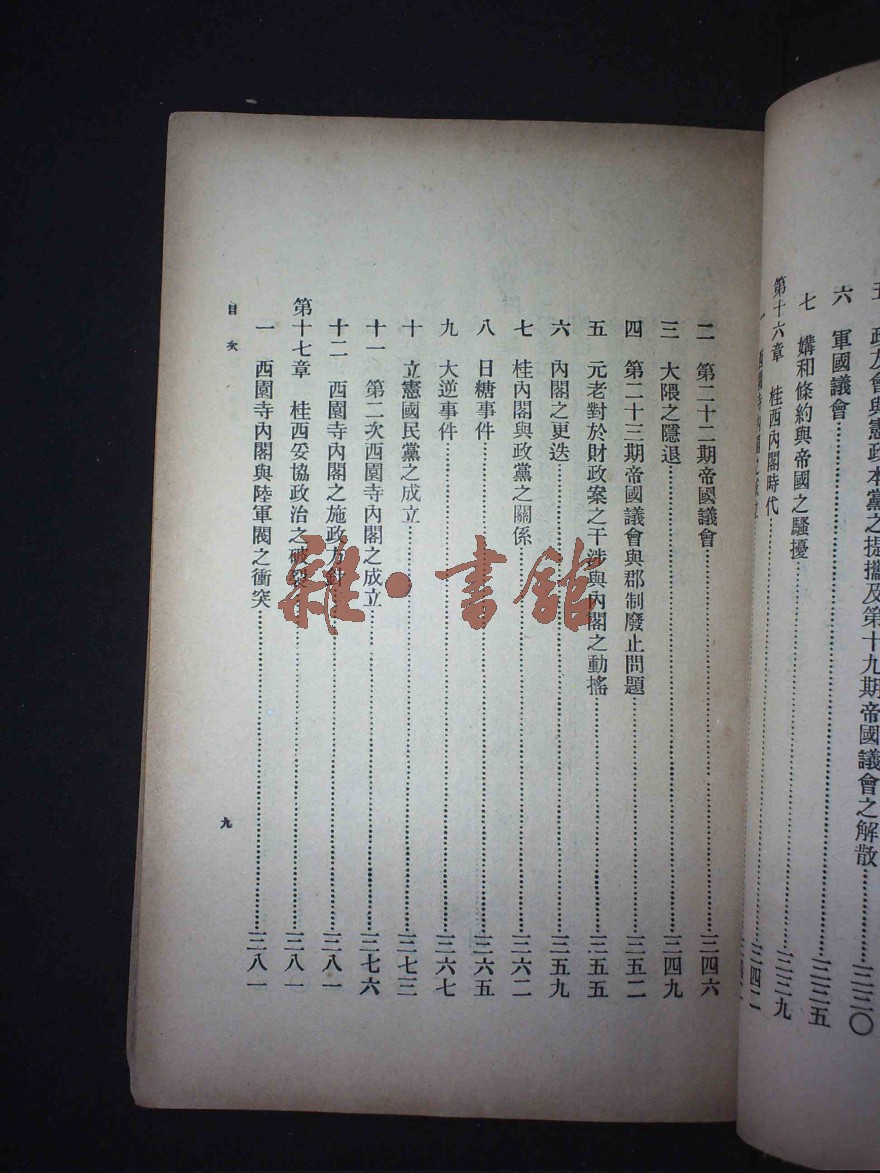 政友會與憲政本黨之提攜及第十九期帝國議會之解散………三三〇
六　軍國議會………三三五
七　媾和條約與帝國之騷擾………三三九
第十六章　桂西內閣時代………三四二
一
二　第二十二期帝國議會………三四六
三　大隈之隱退………三四九
四　第二十三期帝國議會與郡制廢止問題………三五二
五　元老對於財政案之干涉與內閣之動搖………三五五
六　內閣之更迭………三五九
七　桂內閣與政黨之關係………三六二
八　日糖事件………三六五
九　大逆事件………三六七
十　立憲國民黨之成立………三七三
十一　第二次西園寺內閣之成立………三七六
十二　西園寺內閣之施政方針………三八一
第十七章　桂西妥協政治之破裂………三八一
一　西園寺內閣與陸軍閥之衝突………三八一
目次
九
雜·書館